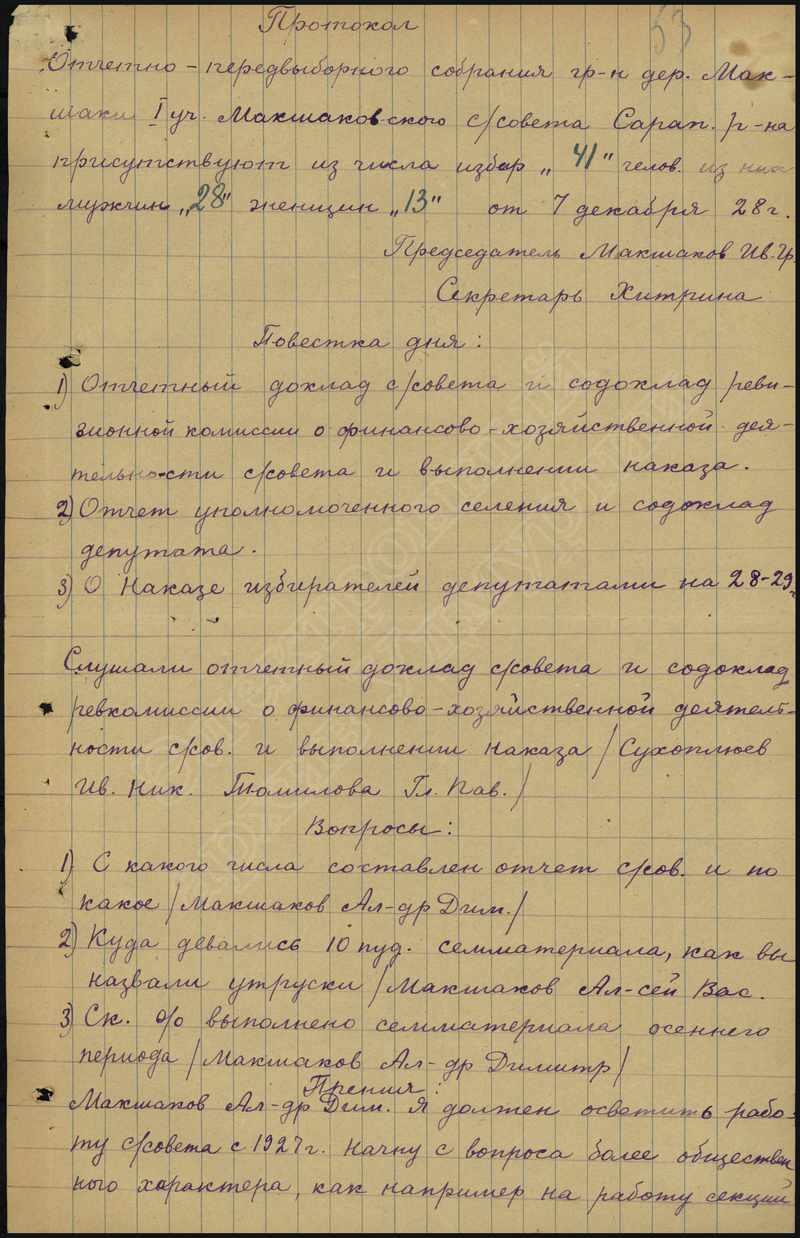 Протокол
53
Отчетно-передвыборного собрания гр-н дер. Мак-
шаки I уч. Макшаковского с/совета Сарап. р-на
присутствуют из числа избир „41" челов. из них
мужчин „28" женщин „13" от 7 декабря 28 г.
Председатель Макшаков Ив. Гр.
Секретарь Хитрина
Повестка дня:
1) Отчетный доклад с/совета и содоклад реви-
зионной комиссии о финансово-хозяйственной дея-
тельности с/совета и выполнении наказа.
2) Отчет уполномоченного селения и содоклад
депутата.
3) О Наказе избирателей депутатами на 28-29 г.
Слушали отчетный доклад с/совета и содоклад
ревкомиссии о финансово-хозяйственной деятель-
ности с/сов. и выполнении наказа / Сухоплюев
Ив. Ник. Томилова Гл. Пав. /
Вопросы:
1) С какого числа составлен отчет с/сов. и по
какое / Макшаков Ал-др Дим. /
2) Куда девались 10 пуд. семматериала, как вы
назвали утруски / Макшаков Ал-сей Вас.
3) Ск. % выполнено семматериала осеннего
периода / Макшаков Ал-др Димитр /
Прения:
Макшаков Ал-др Дим. Я должен осветить рабо-
ту с/совета с 1927 г. Начну с вопроса более обществен
ного характера, как например на работу секций